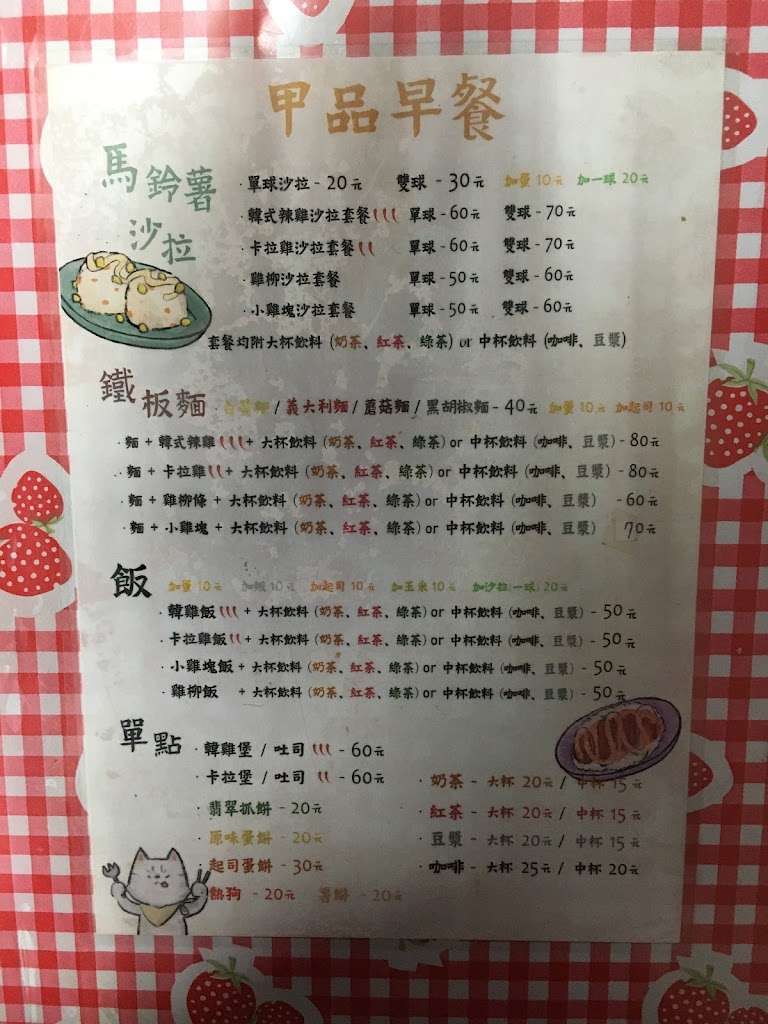 甲品早餐
馬鈴薯沙拉
·單球沙拉 - 20元 雙球 - 30元 加蛋 10元 加一球 20元
·韓式辣雞沙拉套餐 單球 - 60元 雙球 - 70元
·卡拉雞沙拉套餐 單球 - 60元 雙球 - 70元
·雞柳沙拉套餐 單球 - 50元 雙球 - 60元
·小雞塊沙拉套餐 單球 - 50元 雙球 - 60元
套餐均附大杯飲料 (奶茶、紅茶、綠茶) or 中杯飲料 (咖啡、豆漿)
鐵板麵
·白醬麵 / 義大利麵 / 蘑菇麵 / 黑胡椒麵 - 40元 加蛋 10元 加起司 10元
·麵 + 韓式辣雞 + 大杯飲料 (奶茶、紅茶、綠茶) or 中杯飲料 (咖啡、豆漿) - 80元
·麵 + 卡拉雞 + 大杯飲料 (奶茶、紅茶、綠茶) or 中杯飲料 (咖啡、豆漿) - 80元
·麵 + 雞柳條 + 大杯飲料 (奶茶、紅茶、綠茶) or 中杯飲料 (咖啡、豆漿) - 60元
·麵 + 小雞塊 + 大杯飲料 (奶茶、紅茶、綠茶) or 中杯飲料 (咖啡、豆漿) 70元
飯
加蛋 10元 加飯 10元 加起司 10元 加玉米 10元 加沙拉一球 20元
·韓雞飯 + 大杯飲料 (奶茶、紅茶、綠茶) or 中杯飲料 (咖啡、豆漿) - 50元
·卡拉雞飯 + 大杯飲料 (奶茶、紅茶、綠茶) or 中杯飲料 (咖啡、豆漿) - 50元
·小雞塊飯 + 大杯飲料 (奶茶、紅茶、綠茶) or 中杯飲料 (咖啡、豆漿) - 50元
·雞柳飯 + 大杯飲料 (奶茶、紅茶、綠茶) or 中杯飲料 (咖啡、豆漿) - 50元
單點
·韓雞堡 / 吐司 - 60元
·卡拉堡 / 吐司 - 60元
·翡翠抓餅 - 20元
·原味蛋餅 - 20元
·起司蛋餅 - 30元
熱狗 - 20元 薯餅 - 20元
·奶茶 - 大杯 20元 / 中杯 15元
·紅茶 - 大杯 20元 / 中杯 15元
·豆漿 - 大杯 20元 / 中杯 15元
·咖啡 - 大杯 25元 / 中杯 20元